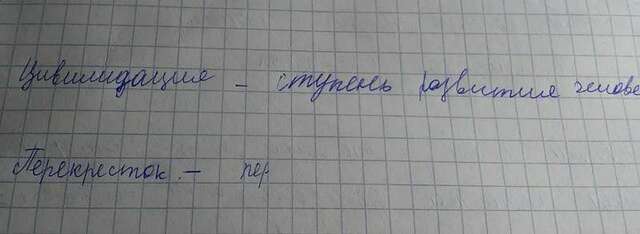 Цивилизация - ступень развития челове
Перекресток - пер